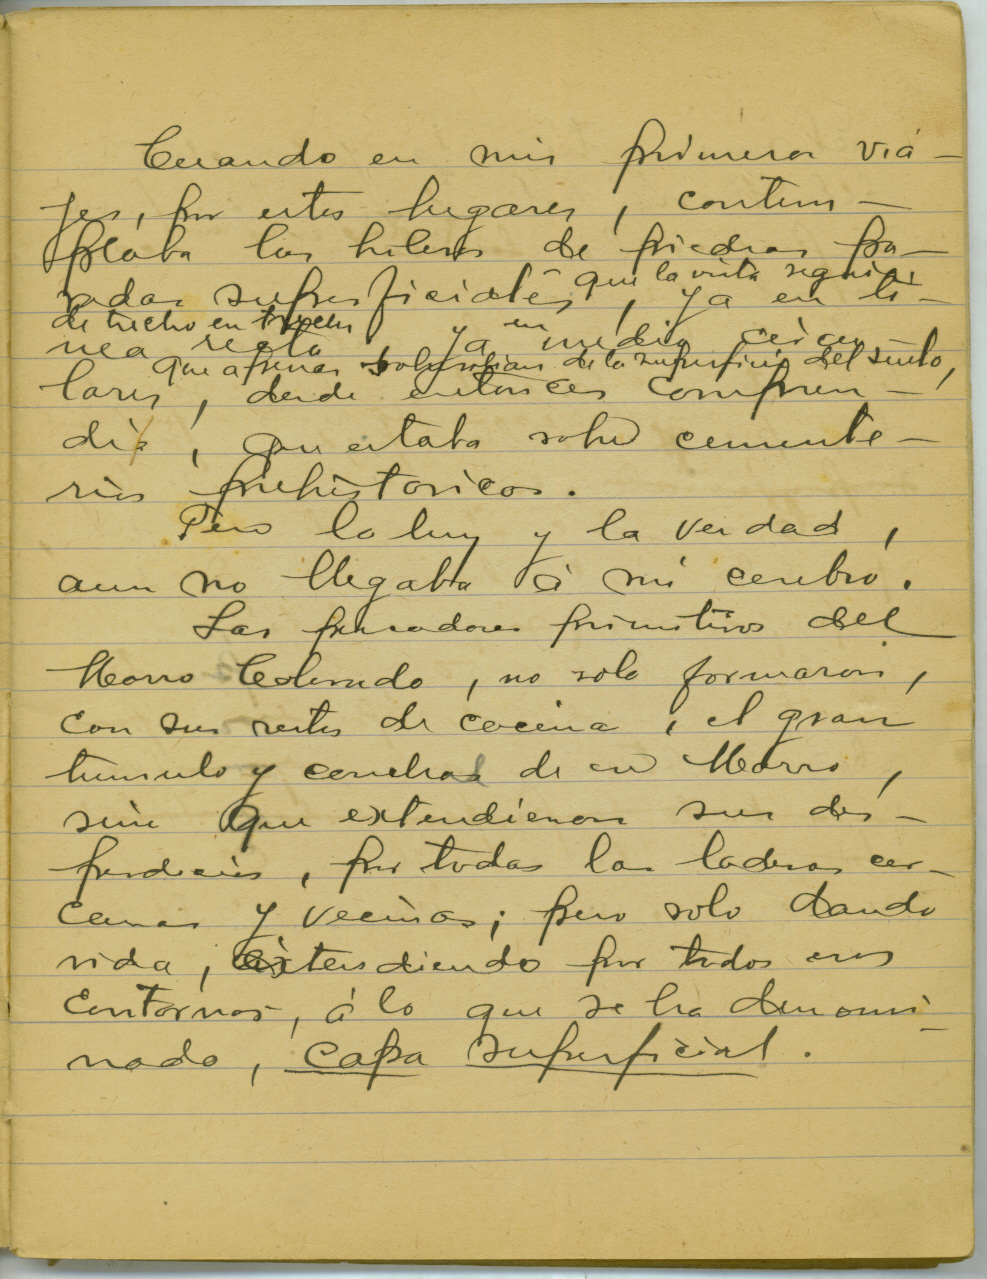 Cuando en mis primeros via-
jes, por estos lugares, contem-
plaba las hileras de piedras pa-
radas superficiales, ya en li-
que la vista seguia
de trecho en trecho
nea recta, ya en medio circu-
que apenas sobresalian de la superficie del suelo,
lares, desde entonces compren-
dia, que estaba sobre cemente-
rios prehistoricos.
Pero la luz y la verdad,
aun no llegaba á mi cerebro.
Los pescadores primitivos del
Morro Colorado, no solo formaron,
con sus restos de cocina, el gran
tumulo y conchal de ese Morro,
sino que extendieron sus des-
perdicios, por todas las laderas cer-
canas y vecinas; pero solo dando
vida, extendiendo por todos esos
Contornos, á lo que se ha denomi-
nado, capa superficial.